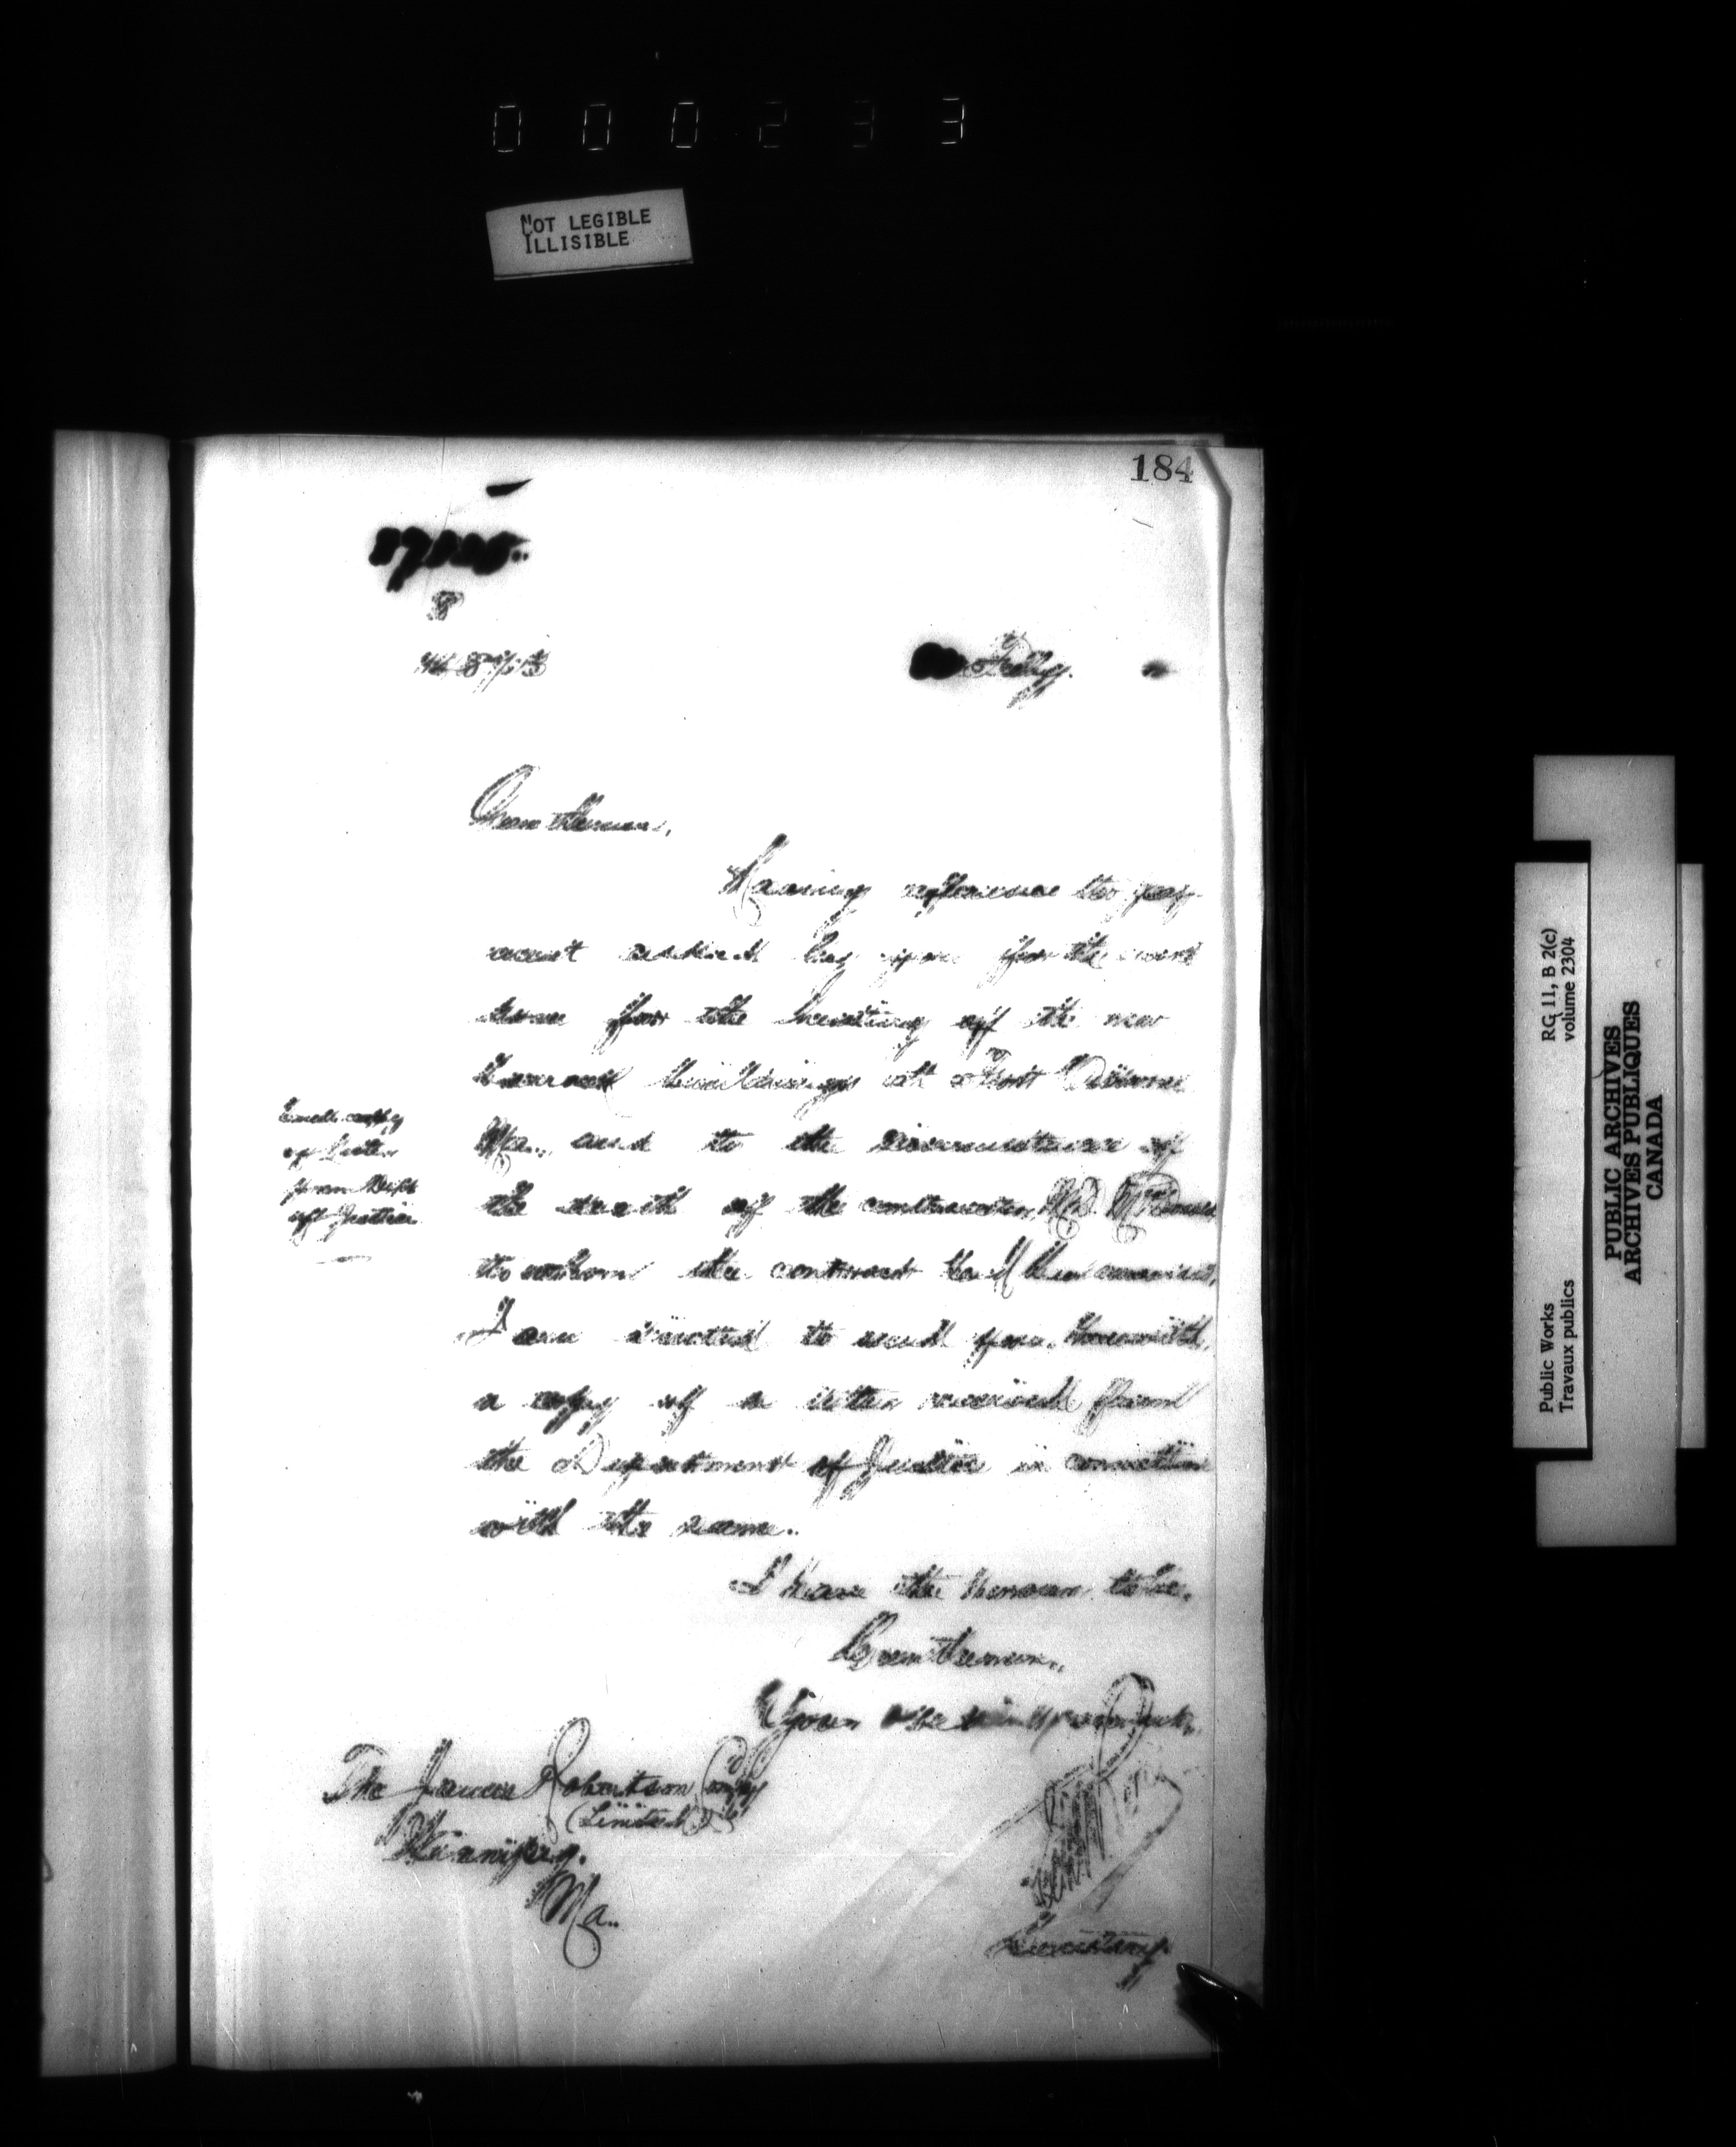 000233
NOT LEGIBLE
ILLISIBLE
184
Feby.
Gentlemen,
Having reference to pay-
ment asked by you for the work
done for the heating of the new
barrack buildings at Fort Osborne
Ma., and to the circumstance of
the death of the contractor, McDonald
to whom the contract had been awarded,
I am directed to send you, herewith,
a copy of a letter received from
the Department of Justice in connection
with the same.
copy
of letter
from Dept
of Justice
I have the honour to be,
Gentlemen,
Your obedient servant,
The James Robertson Compy
(Limited)
Winnipeg.
Ma.
Secretary
Public Works
Travaux publics
RG 11, B 2(c)
volume 2304
PUBLIC ARCHIVES
ARCHIVES PUBLIQUES
CANADA